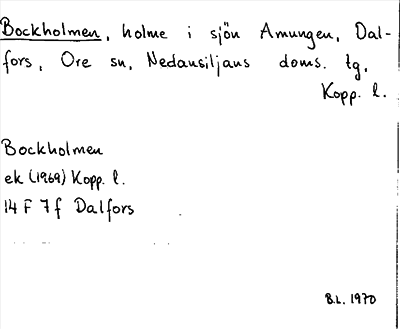 Bockholmen, holme i sjön Amungen, Dal-
fors, Ore sn, Nedansiljans doms. tg,
Kopp. l.
Bockholmen
ek (1969) Kopp. l.
14 F 7 f Dalfors
B.L. 1970